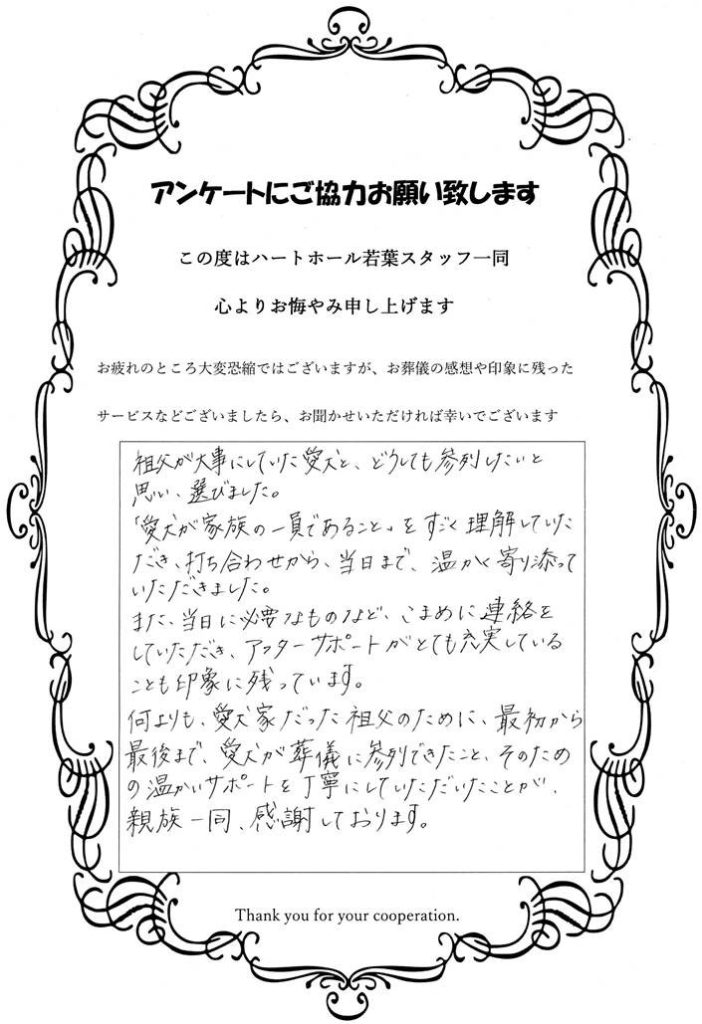 アンケートにご協力お願い致します
この度はハートホール若葉スタッフ一同
心よりお悔やみ申し上げます
お疲れのところ大変恐縮ではございますが、お葬儀の感想や印象に残った
サービスなどございましたら、お聞かせいただければ幸いでございます
祖父が大事にしていた愛犬と、どうしても参列したいと
思い、選びました。
「愛犬が家族の一員であること」をすごく理解していた
だき、打ち合わせから、当日まで、温かく寄り添って
いただきました。
また、当日に必要なものなど、こまめに連絡を
していただき、アフターサポートがとても充実している
ことも印象に残っています。
何よりも、愛犬家だった祖父のために、最初から
最後まで、愛犬が葬儀に参列できたこと、そのため
の温かいサポートを丁寧にしていただいたことが、
親族一同、感謝しております。
Thank you for your cooperation.